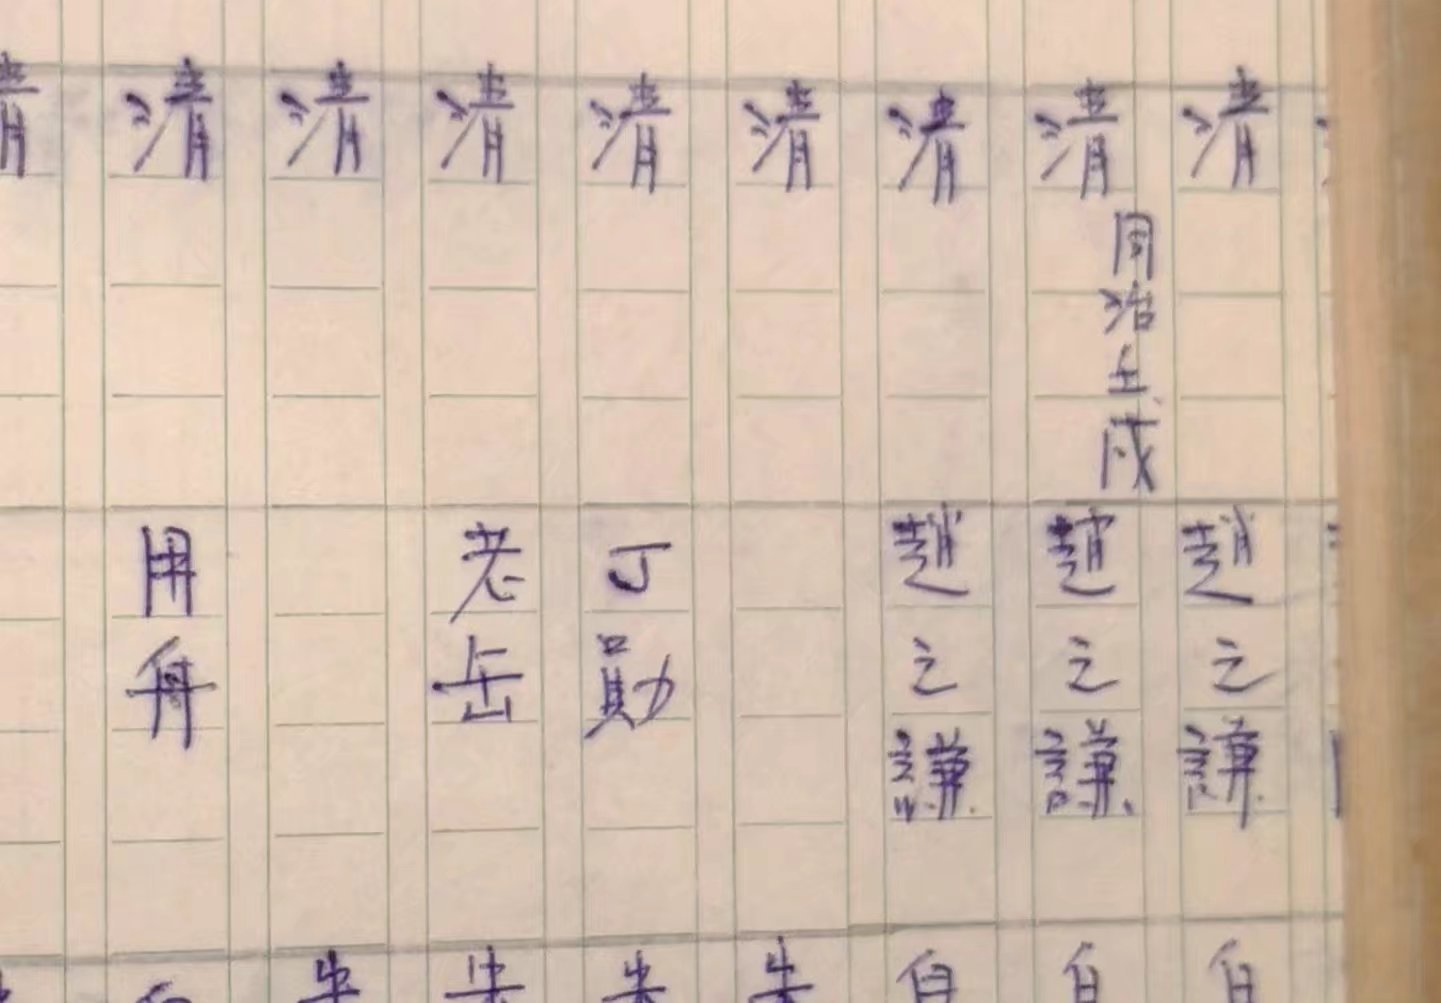 清趙之謙白
清同治壬戌趙之謙白
清趙之謙白
清朱
清丁勛朱
清老岳朱
清朱
清用舟
清